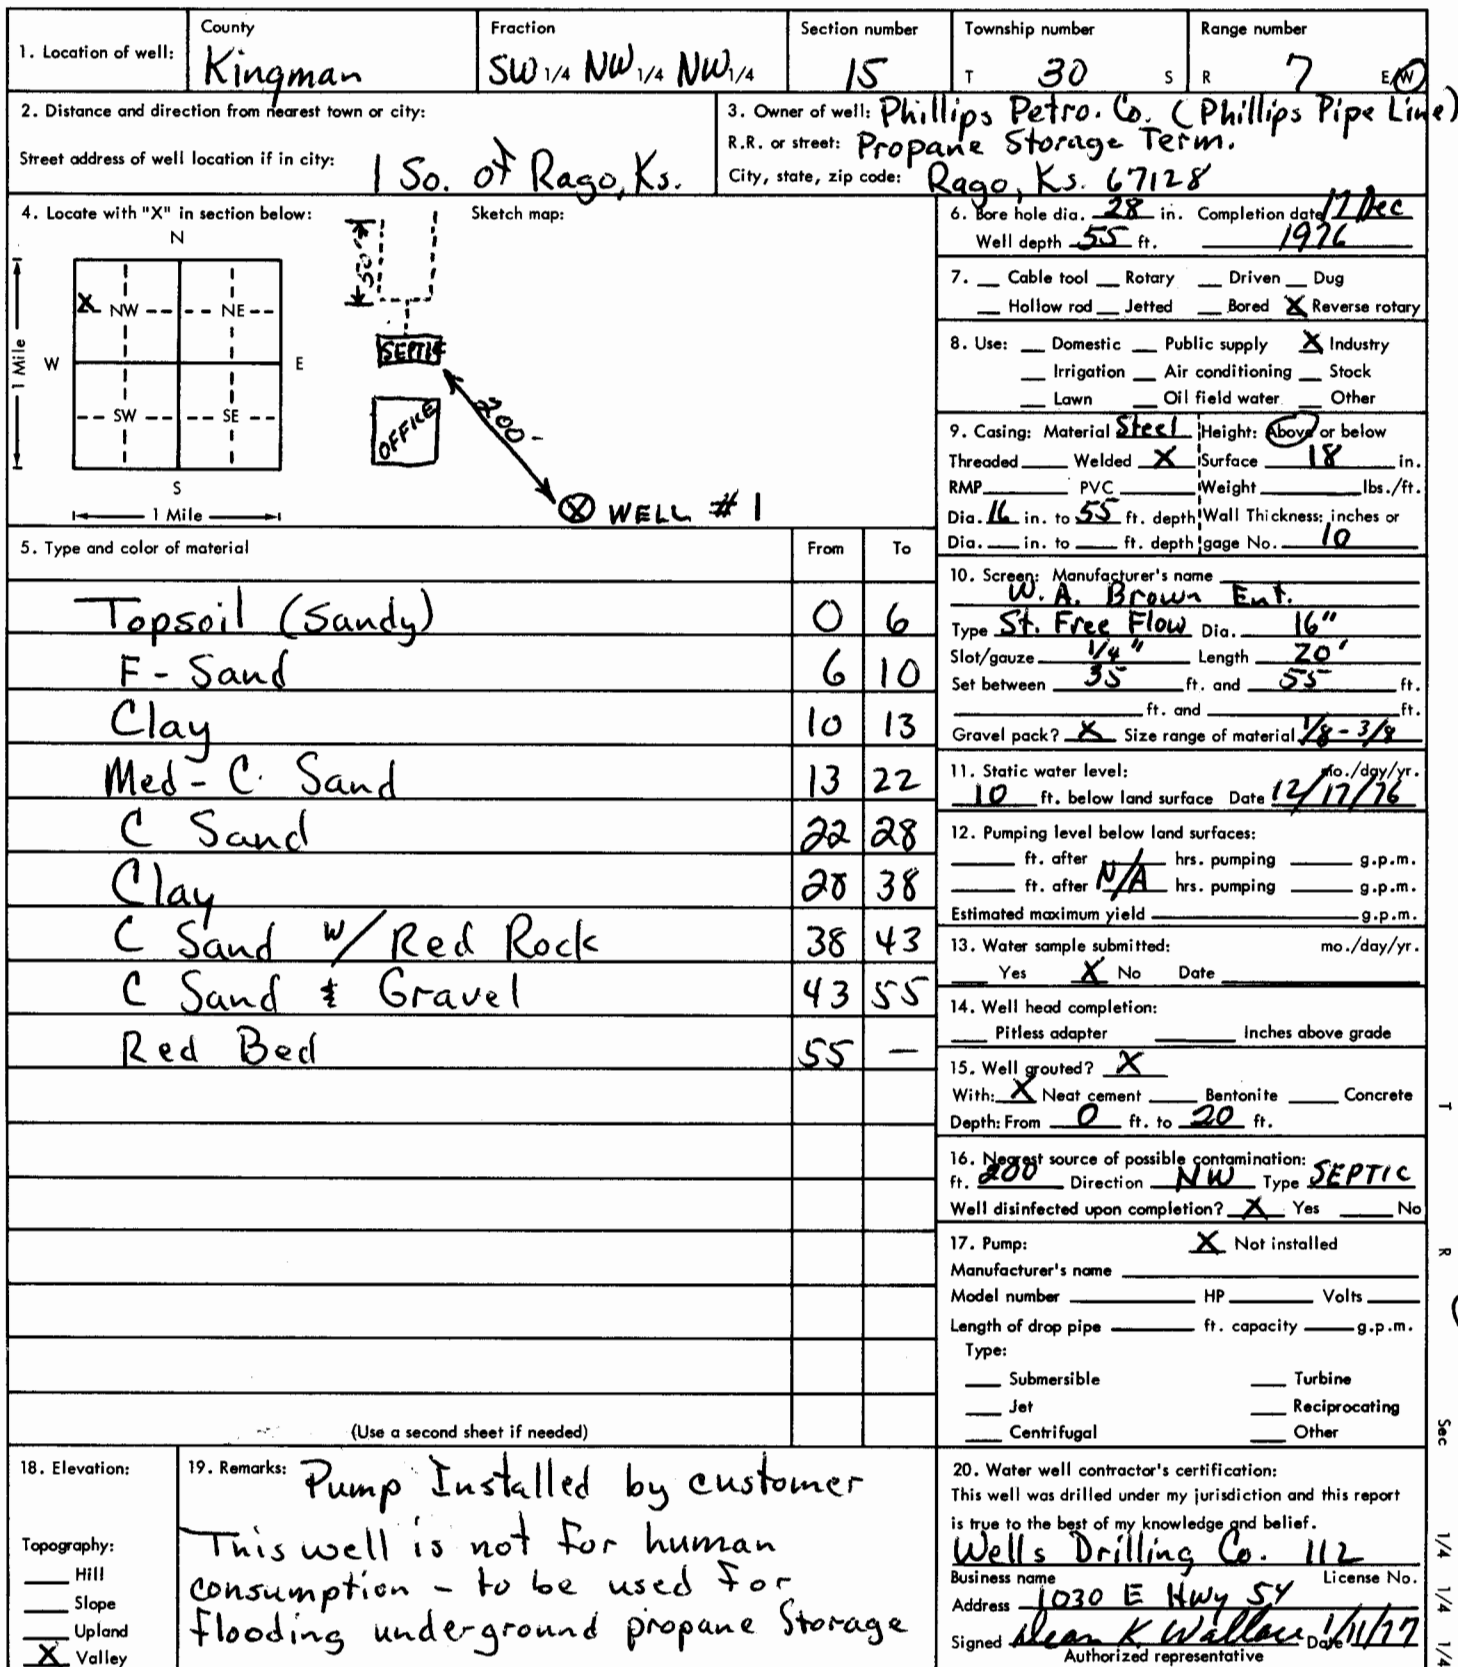 1. Location of well: County Kingman Fraction SW 1/4 NW 1/4 NW 1/4 Section number 15 Township number T 30 S Range number R 7 E/W
2. Distance and direction from nearest town or city:
Street address of well location if in city: 1 So. of Rago, Ks.
3. Owner of well: Phillips Petro. Co. (Phillips Pipe Line)
R.R. or street: Propane Storage Term.
City, state, zip code: Rago, Ks. 67128
4. Locate with "X" in section below: Sketch map:
N
X NW NE
W E
SW SE
S
1 Mile
1 Mile
50'
SEPTIC
OFFICE
200'
X WELL #1
5. Type and color of material From To
Topsoil (Sandy) 0 6
F- Sand 6 10
Clay 10 13
Med- C. Sand 13 22
C Sand 22 28
Clay 28 38
C Sand w/ Red Rock 38 43
C Sand & Gravel 43 55
Red Bed 55 —
(Use a second sheet if needed)
6. Bore hole dia. 28 in. Completion date 17 Dec
Well depth 55 ft. 1976
7. __ Cable tool __ Rotary __ Driven __ Dug
__ Hollow rod __ Jetted __ Bored X Reverse rotary
8. Use: __ Domestic __ Public supply X Industry
__ Irrigation __ Air conditioning __ Stock
__ Lawn __ Oil field water __ Other
9. Casing: Material Steel Height: Above or below
Threaded ____ Welded X Surface 18 in.
RMP ____ PVC ____ Weight ____ lbs./ft.
Dia. 16 in. to 55 ft. depth Wall Thickness: inches or
Dia. __ in. to __ ft. depth gage No. 10
10. Screen: Manufacturer's name
W. A. Brown Ent.
Type St. Free Flow Dia. 16"
Slot/gauze 1/4" Length 20'
Set between 35 ft. and 55 ft.
____ ft. and ____ ft.
Gravel pack? X Size range of material 1/8 - 3/8
11. Static water level: mo./day/yr.
10 ft. below land surface Date 12/17/76
12. Pumping level below land surfaces:
____ ft. after ____ hrs. pumping ____ g.p.m.
____ ft. after N/A hrs. pumping ____ g.p.m.
Estimated maximum yield ____ g.p.m.
13. Water sample submitted: mo./day/yr.
__ Yes X No Date ____
14. Well head completion:
__ Pitless adapter ____ Inches above grade
15. Well grouted? X
With: X Neat cement ____ Bentonite ____ Concrete
Depth: From 0 ft. to 20 ft.
16. Nearest source of possible contamination:
ft. 200 Direction NW Type SEPTIC
Well disinfected upon completion? X Yes ____ No
17. Pump: X Not installed
Manufacturer's name ____
Model number ____ HP ____ Volts ____
Length of drop pipe ____ ft. capacity ____ g.p.m.
Type:
__ Submersible __ Turbine
__ Jet __ Reciprocating
__ Centrifugal __ Other
18. Elevation:
Topography:
__ Hill
__ Slope
__ Upland
X Valley
19. Remarks: Pump Installed by customer
This well is not for human
consumption - to be used for
flooding underground propane Storage
20. Water well contractor's certification:
This well was drilled under my jurisdiction and this report
is true to the best of my knowledge and belief.
Wells Drilling Co. 112
Business name License No.
Address 1030 E Hwy 54
Signed Dean K. Wallace Date 1/11/77
Authorized representative
T
R
Sec
1/4 1/4 1/4